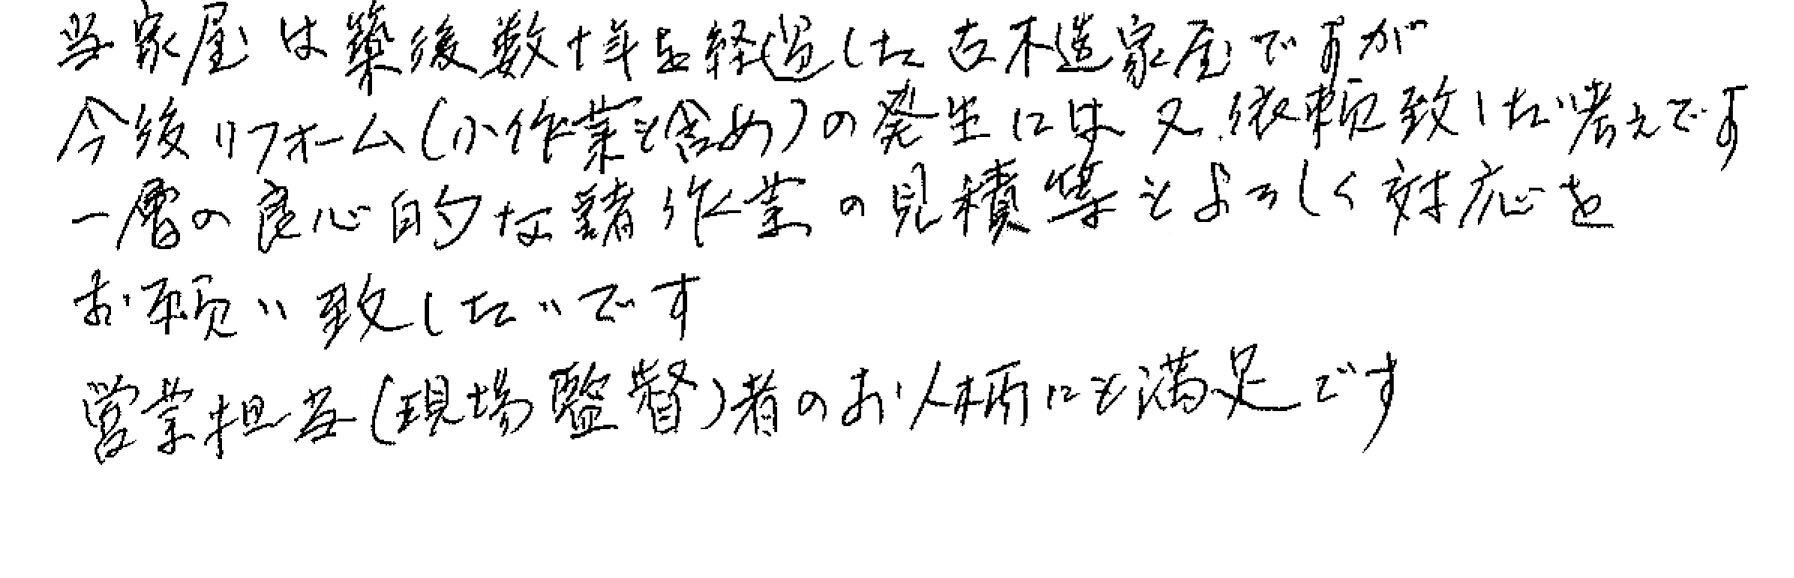 当家屋は築後数十年を経過した古木造家屋ですが
今後リフォーム(小作業も含め)の発生には又、依頼致したい考えです
一層の良心的な諸作業の見積等もよろしく対応を
お願い致したいです
営業担当(現場監督)者のお人柄にも満足です